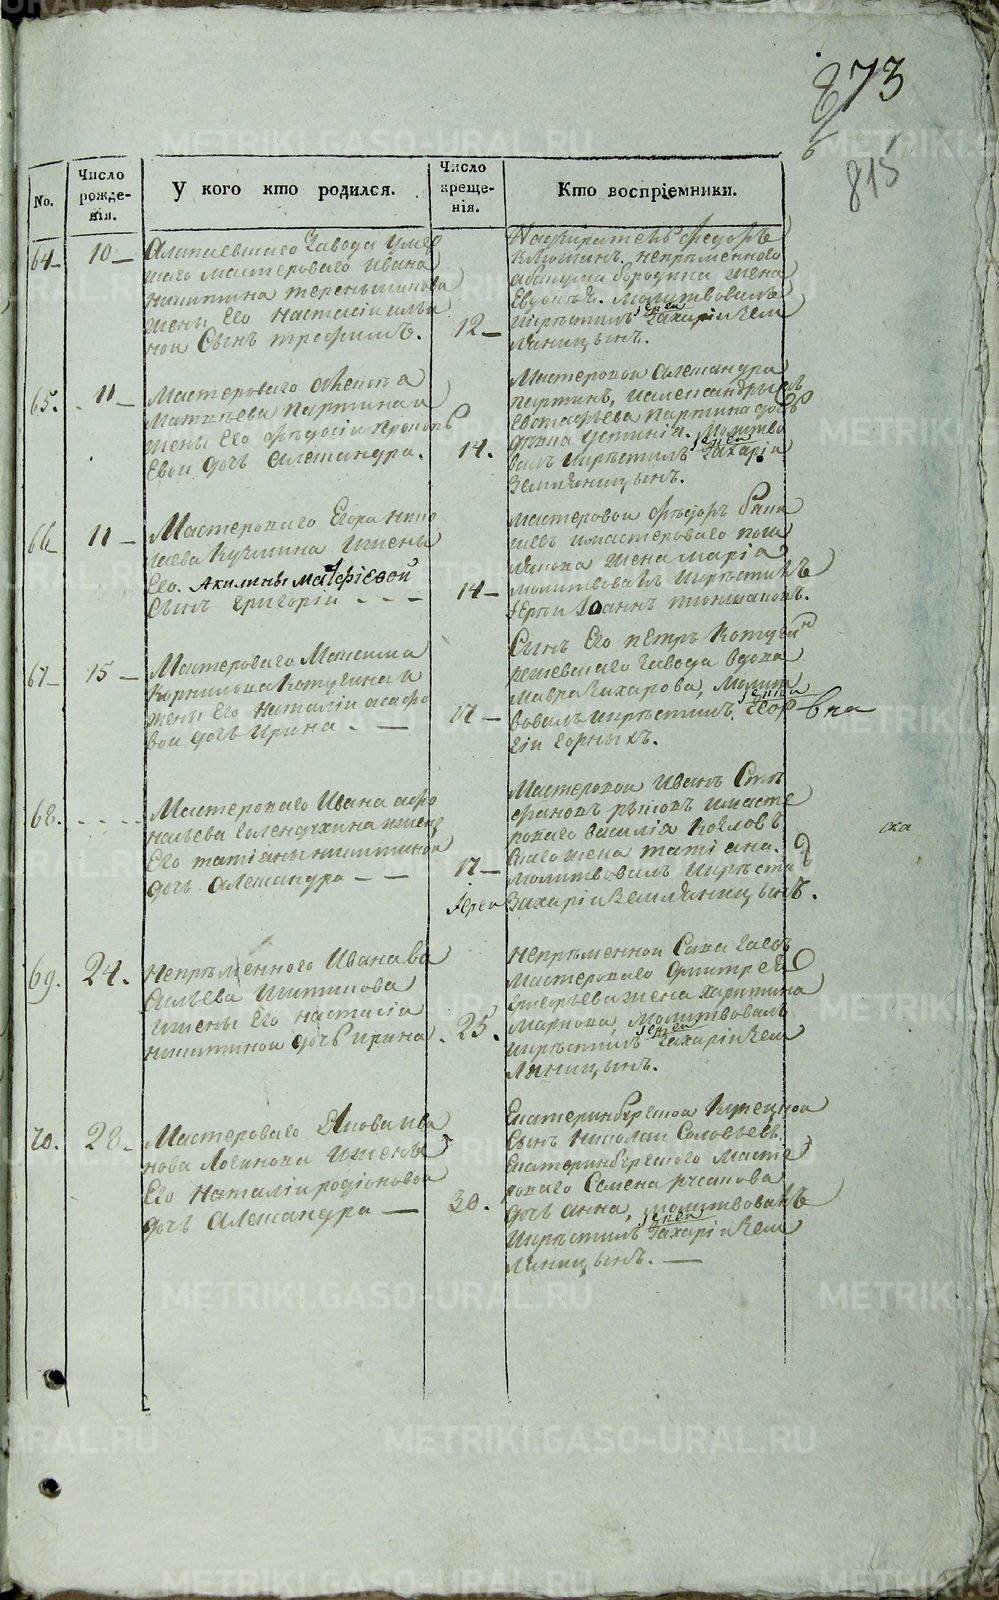 873
815
No.
Число рожде-нія.
У кого кто родился.
Число креще-нія.
Кто воспріемники.
64 10
Алапаевскаго Завода умер
шаго мастероваго Ивана
никитина
жены Его Настасіи
Сынъ трофимъ.
12
Надзиратель федоръ
непременнаго
бородина жена
Евдокія. молитвовалъ
икрестилъ іерей Захарій Зем
ляницынъ.
65. 11
Мастероваго Алексея
Матвеева партина и
жены Его федосіи прокопь
Евои дочь Александра.
14.
Мастеровой Александра
партинъ, и
Евстафьева партина дочь
девка устинія. Молитво
валъ икрестилъ іерей Захарій
Земляницынъ.
66 11
Мастероваго Егора нико
лаева Кузмина ижены
Его Акилины Матфіевой
Сынъ григорій
14
мастеровой федоръ
имастероваго
жена марія
молитвовалъ икрестилъ
іерей Іоаннъ
67 15
Мастероваго Максима
Корнилова Котугина и
жены Его Наталіи
вой дочь Ирина.
17
Сынъ Его петръ Котугинъ
режевскаго завода вдова
мавра Захарова, молит
вовалъ икрестилъ. іерей Геор
гій горныхъ.
вна
68.
Мастероваго Ивана афо
насьева Голендухина ижены
Его татіаны никитиной
дочь Александра
17
Мастеровой Иванъ Сте
фановъ рычковъ имасте
роваго василія Козловъ
скаго жена татіана.
молитвовалъ икрести
іерей Захарій Земляницынъ.
ска
69. 24.
Непременного Ивана ва
сильева
ижены Его настасіи
никитиной дочь ирина.
25.
непременной Сава
мастероваго дмитрея
григорьева жена харитина
маркова, молитвовалъ
икрестилъ іерей Захарій Зем
ляницынъ.
70. 28.
Мастероваго Якова ива
нова Логинова ижены
Его Наталіи родіоновой
дочь Александра
30.
Екатеринбургской Купецкой
Сынъ николай Соловьевъ
Екатеринбургскаго масте
роваго Семена русанова
дочь анна, молитвовалъ
икрестилъ іерей Захарій Зем
ляницынъ.
METRIKI.GASO-URAL.RU